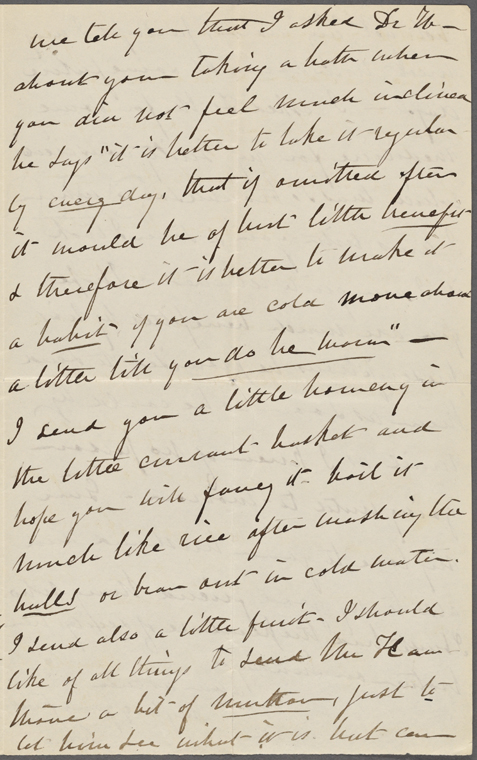 me tell you that I asked Dr W—
about your taking a bath when
you did not feel much inclined
he says "it is better to take it regular
ly every day, that if omitted often
it would be of but little benefit
& therefore it is better to make it
a habit if you are cold move about
a little till you do be warm" —
I send you a little hominy in
the little currant basket and
hope you will fancy it - boil it
much like rice after washing the
hulls or bran out in cold water.
I send also a little fruit - I should
like of all things to send Mr Haw
thorne a bit of mutton, just to
let him see what it is but can